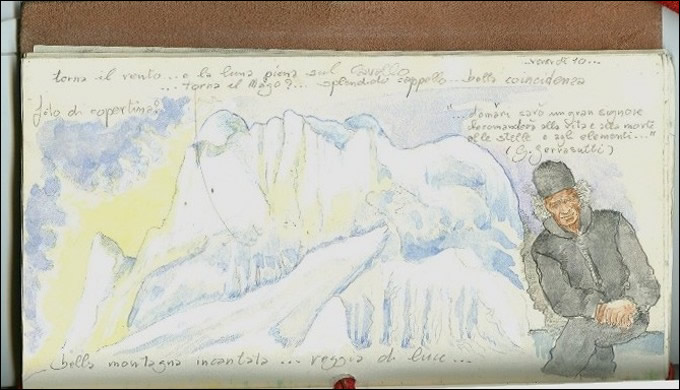 torna il vento... e la luna piena sul
... torna il Mago?... splendido cappello... bella coincidenza
filo di copertina?
"...domani sarò un gran signore
comanderò alla vita e alla morte
alle stelle e agli elementi..."
(G. Gervasutti)
bella montagna incantata... reggia di luce...